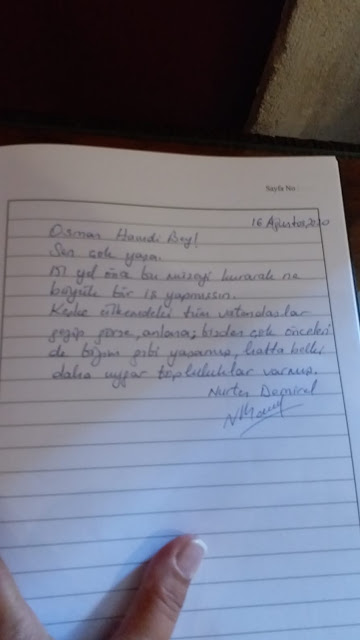 Sayfa No :
16 Ağustos 2020
Osman Hamdi Bey!
Sen çok yaşa.
yıl önce bu müzeyi kurarak ne
büyük bir iş yapmışsın.
Keşke ülkemdeki tüm vatandaşlar
gezip görse, anlasa; bizden çok önceleri
de bizim gibi yaşamış, hatta belki
daha uygar topluluklar varmış.
Nurten Demirel